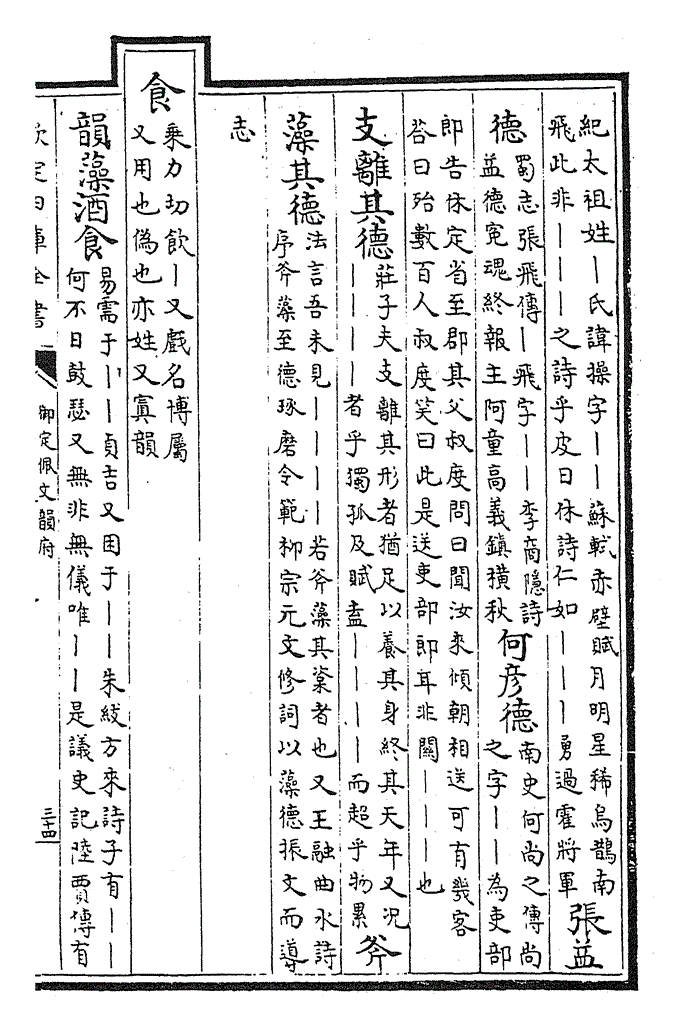 紀太祖姓｜氏諱操字｜｜蘇軾赤壁賦月明星稀烏鵲南
飛此非｜｜｜之詩乎皮日休詩仁如｜｜｜勇過霍將軍
張益
德
蜀志張飛傳｜飛字｜｜李商隱詩
益德冤魂終報主阿童高義鎮橫秋
何彦德
南史何尚之傳尚
之字｜｜為吏部
郎告休定省至郡其父叔度問曰聞汝來傾朝相送可有幾客
荅曰殆數百人叔度笑曰此是送吏部郎耳非關｜｜｜也
支離其德
莊子夫支離其形者猶足以養其身終其天年又况
｜｜｜｜者乎獨孤及賦盍｜｜｜｜而超乎物累
斧
藻其德
法言吾未見｜｜｜｜若斧藻其楶者也又王融曲水詩
序斧藻至德琢磨令範栁宗元文修詞以藻德振文而導
志
食
乗力切飲｜又戲名博屬
又用也偽也亦姓又寘韻
韻藻酒食
易需于｜｜貞吉又困于｜｜朱紱方來詩子有｜｜
何不日鼓瑟又無非無儀唯｜｜是議史記陸賈傳有
欽定四庫全書
御定佩文韻府
三十四